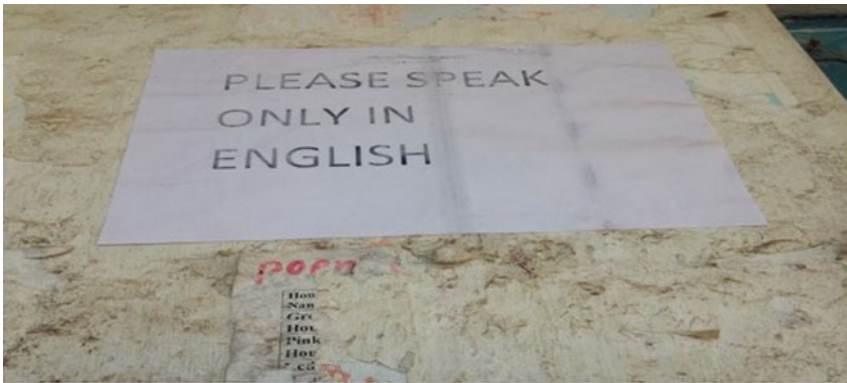 PLEASE SPEAK
ONLY IN
ENGLISH
poem
Hou
Nan
Gre
Hou
Pink
Hou